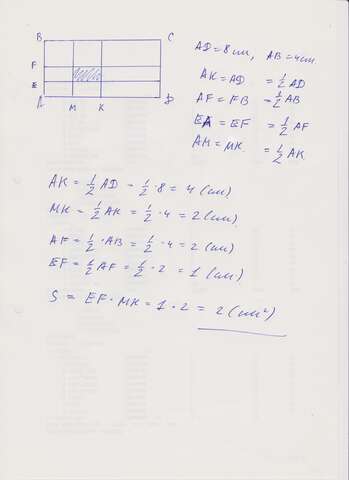 B C
F
E
A M K D
AD = 8 см, AB = 4 см
AK = AD = 1/2 AD
AF = FB = 1/2 AB
EA = EF = 1/2 AF
AM = MK = 1/2 AK
AK = 1/2 AD - 1/2 · 8 = 4 (см)
MK = 1/2 AK = 1/2 · 4 = 2 (см)
AF = 1/2 · AB = 1/2 · 4 = 2 (см)
EF = 1/2 AF = 1/2 · 2 = 1 (см)
S = EF · MK = 1 · 2 = 2 (см²)